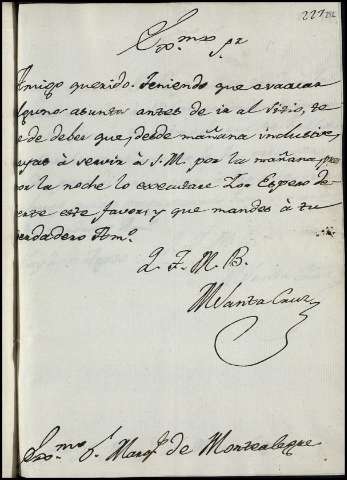 227
Exmo Sr
Amigo querido. Teniendo que evacuar
algunos asuntos antes de ir al Sitio, te
de deber que, desde mañana inclusive,
vayas à servir à S.M. por la mañana, pues
por la noche lo executare Yo. Espero de-
verte este favor, y que mandes à tu
verdadero Amo.
Q. T. M. B.
MSanta Cruz
Exmo Sr. Marqs de Montealegre